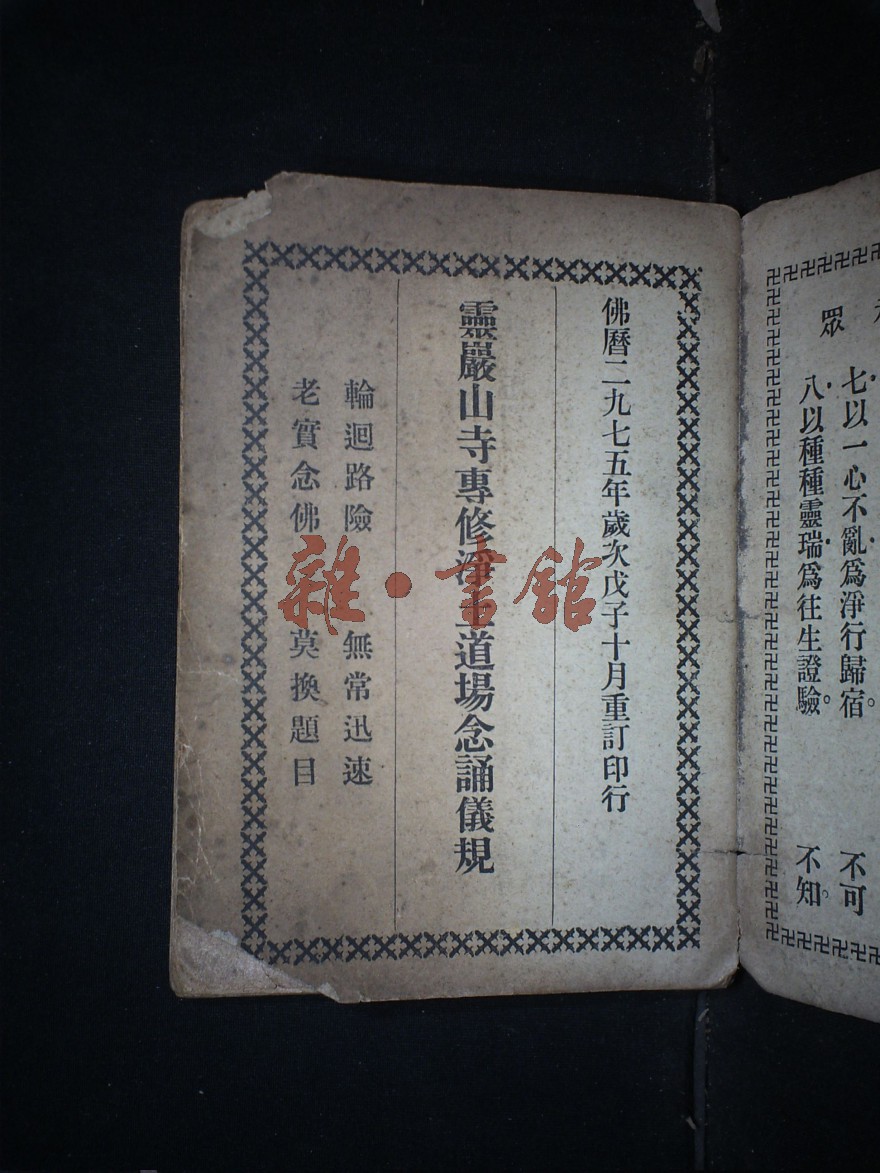 眾
七以一心不亂為淨行歸宿。
不可
八以種種靈瑞為往生證驗。
不知。
佛曆二九七五年歲次戊子十月重訂印行
靈巖山寺專修淨土道場念誦儀規
輪迴路險 無常迅速
老實念佛 莫換題目
雜·書館